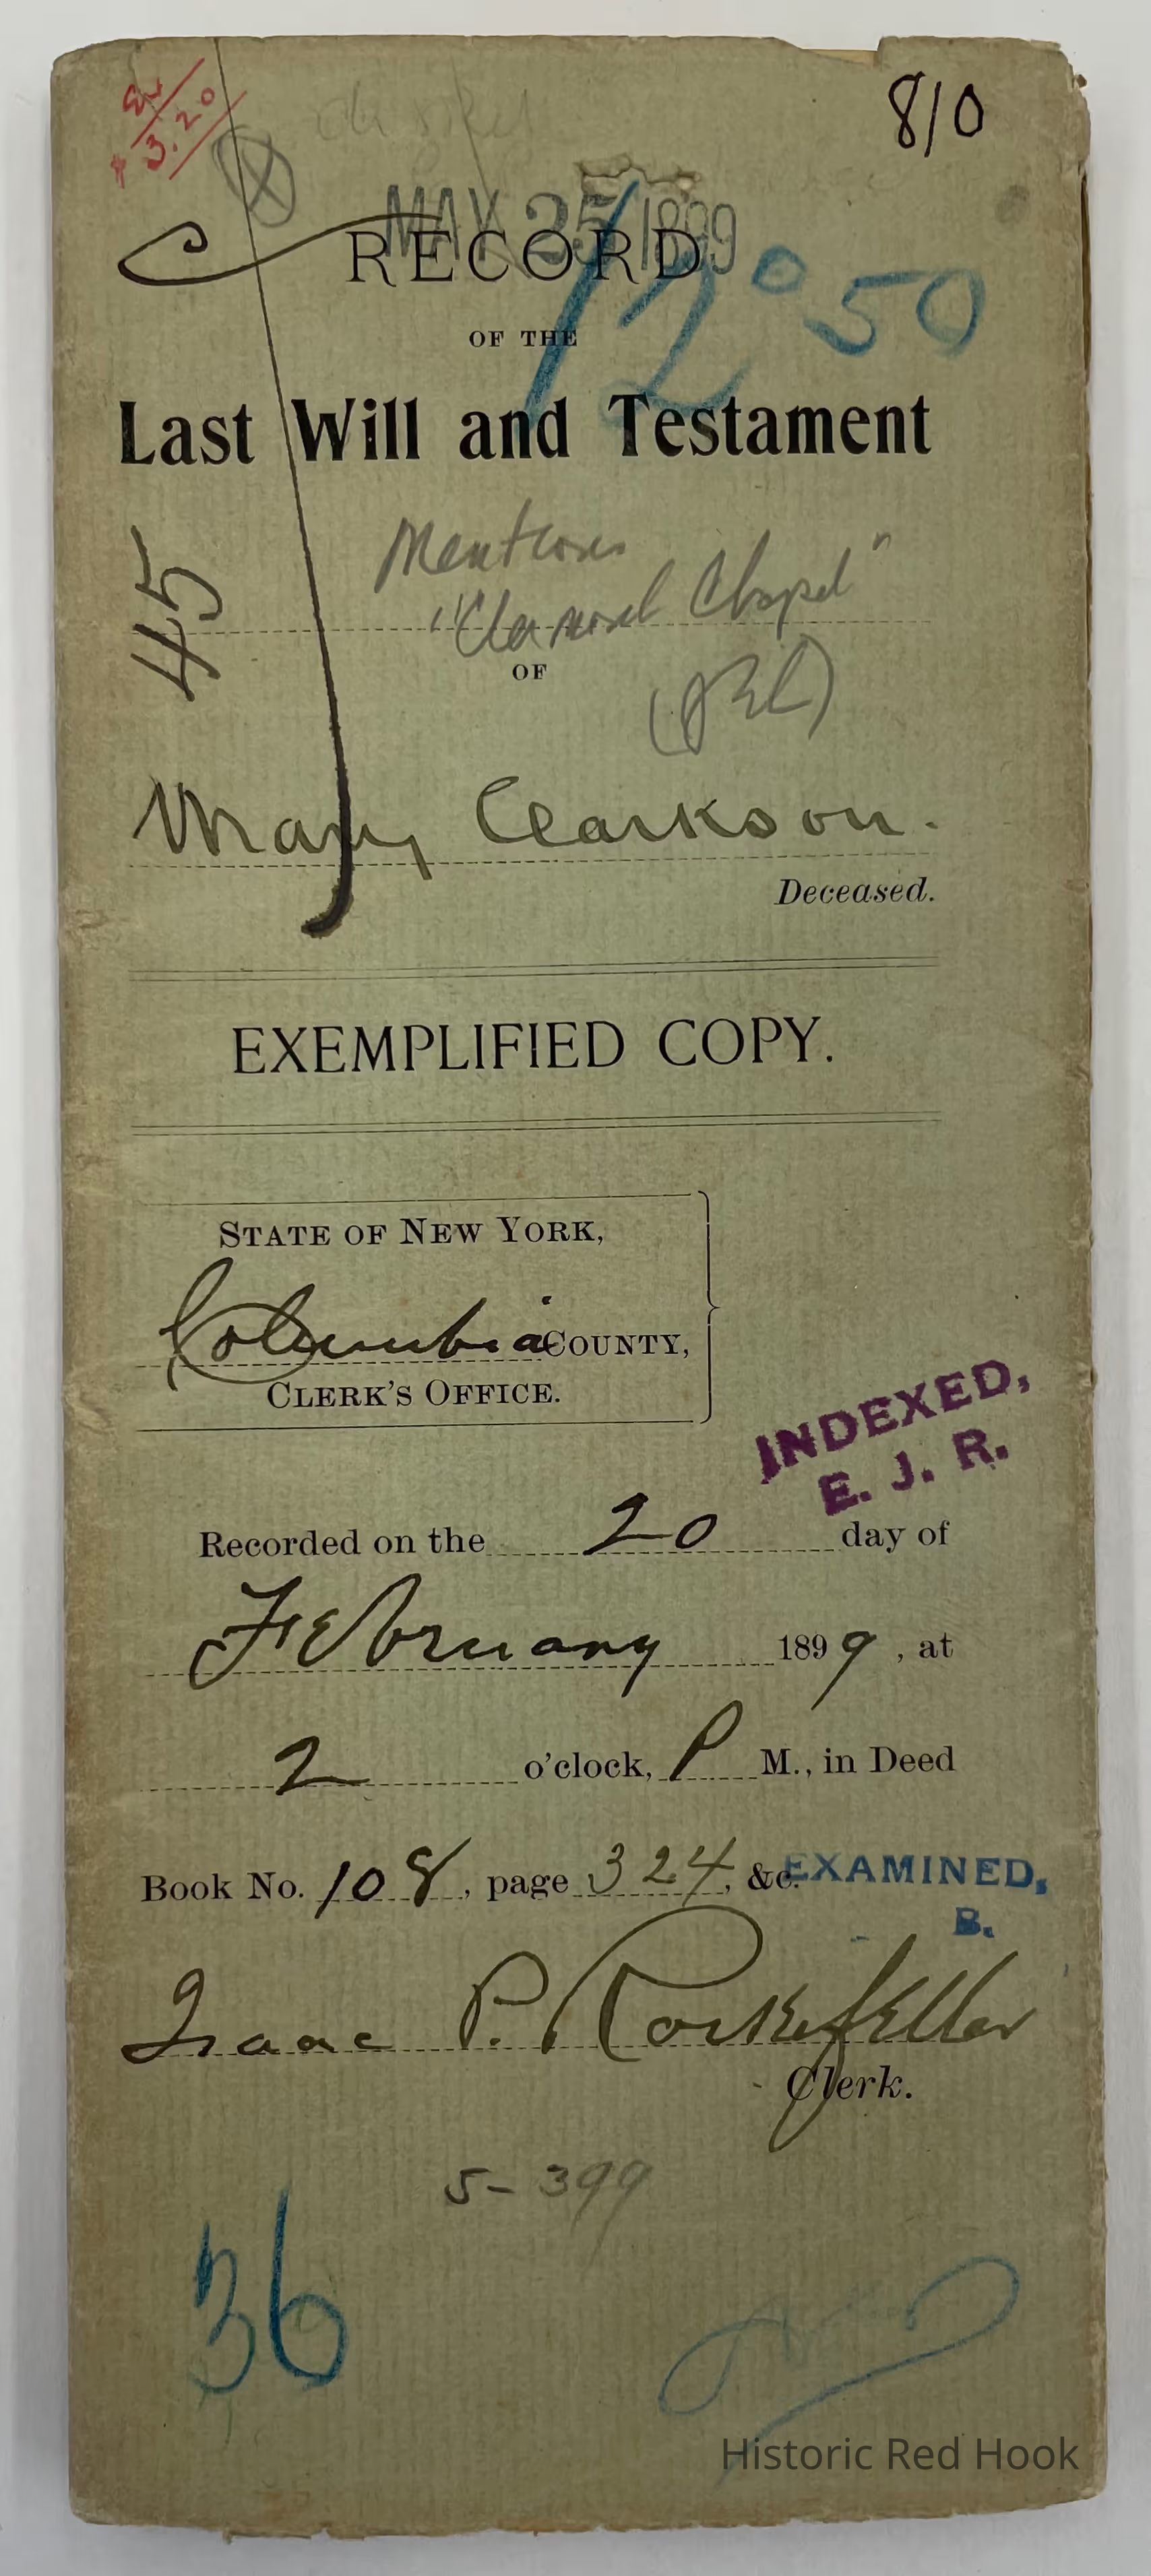 $ 3.20
810
MAY 25 1899
RECORD
12 50
OF THE
Last Will and Testament
45
Mentions
"Clermont Chapel"
OF
Mary Clarkson.
Deceased.
EXEMPLIFIED COPY.
STATE OF NEW YORK,
Columbia COUNTY,
CLERK'S OFFICE.
INDEXED,
E. J. R.
Recorded on the 20 day of
February 1899, at
2 o'clock, P M., in Deed
Book No. 108, page 324, &c.
EXAMINED,
B.
Isaac P. Rockefeller
Clerk.
5-399
36
Historic Red Hook